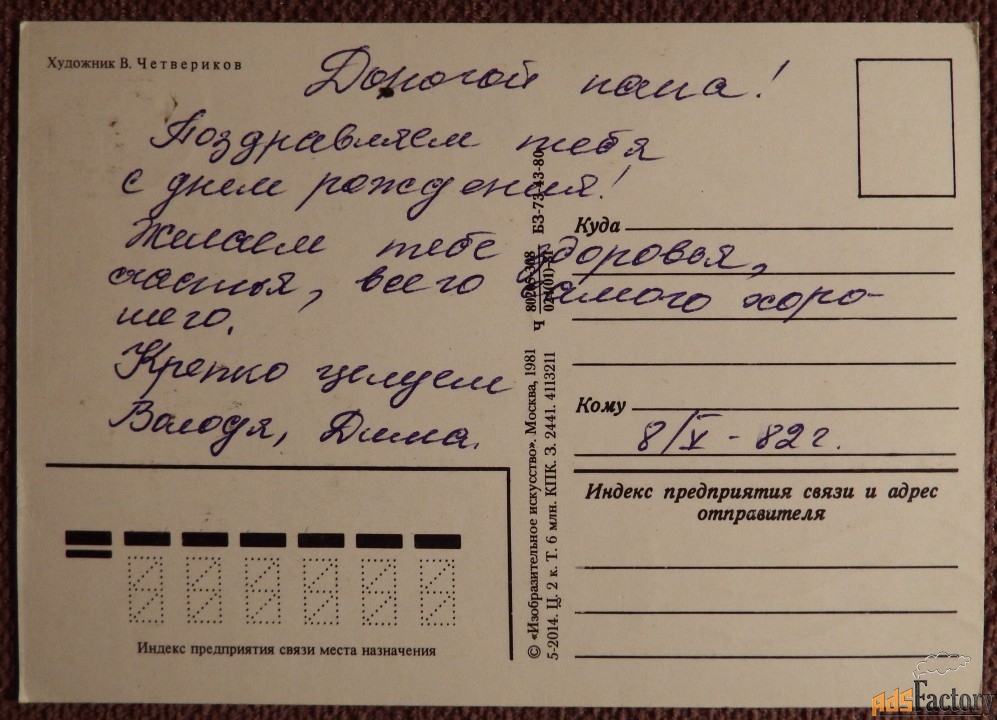 Художник В. Четвериков
Дорогой папа!
Поздравляем тебя
с днем рождения!
Желаем тебе здоровья,
счастья, всего самого хоро-
шего.
Крепко целуем
Володя, Дима.
8/V - 82 г.
Куда
Кому
Индекс предприятия связи и адрес
отправителя
Индекс предприятия связи места назначения
© «Изобразительное искусство». Москва, 1981
5-2014. Ц. 2 к. Т. 6 млн. КПК. З. 2441. 4113211
Ч
БЗ-73-43-80
AdsFactory